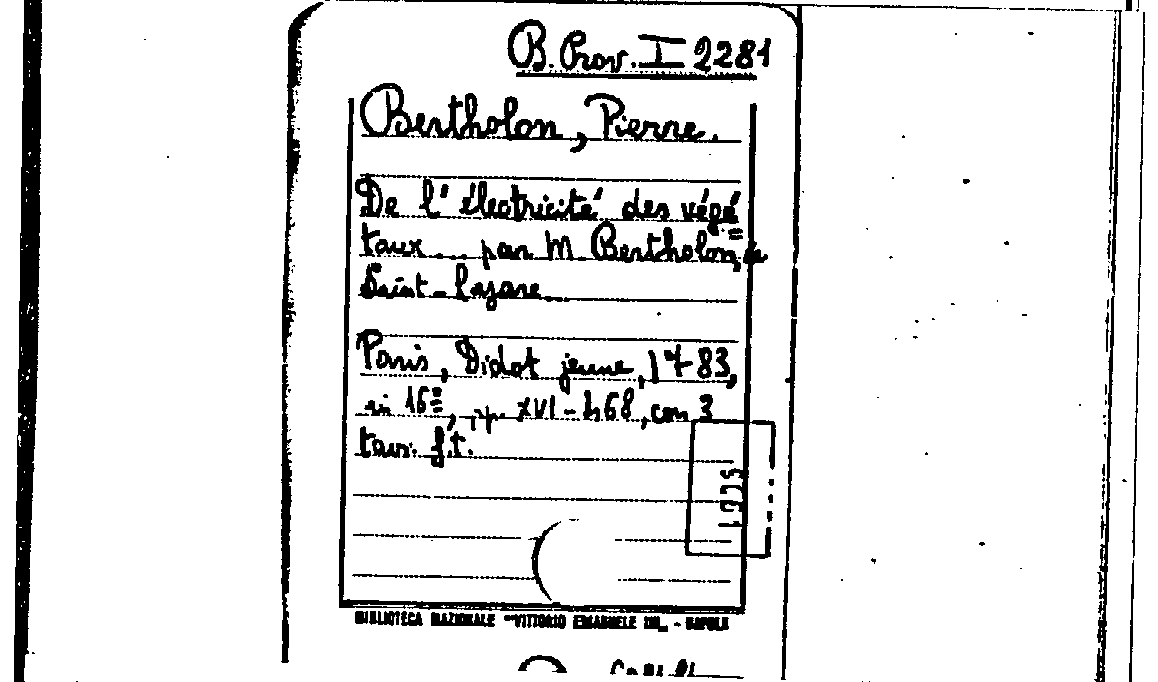 B. Prov. I 2281
Bertholon, Pierre.
De l'électricité des végé=
taux... par M. Bertholon, de
Saint-Lazare...
Paris, Didot jeune, 1783,
in 16º, pp XVI-468, con 3
tav. f.t.
BIBLIOTECA NAZIONALE "VITTORIO EMANUELE III" - NAPOLI